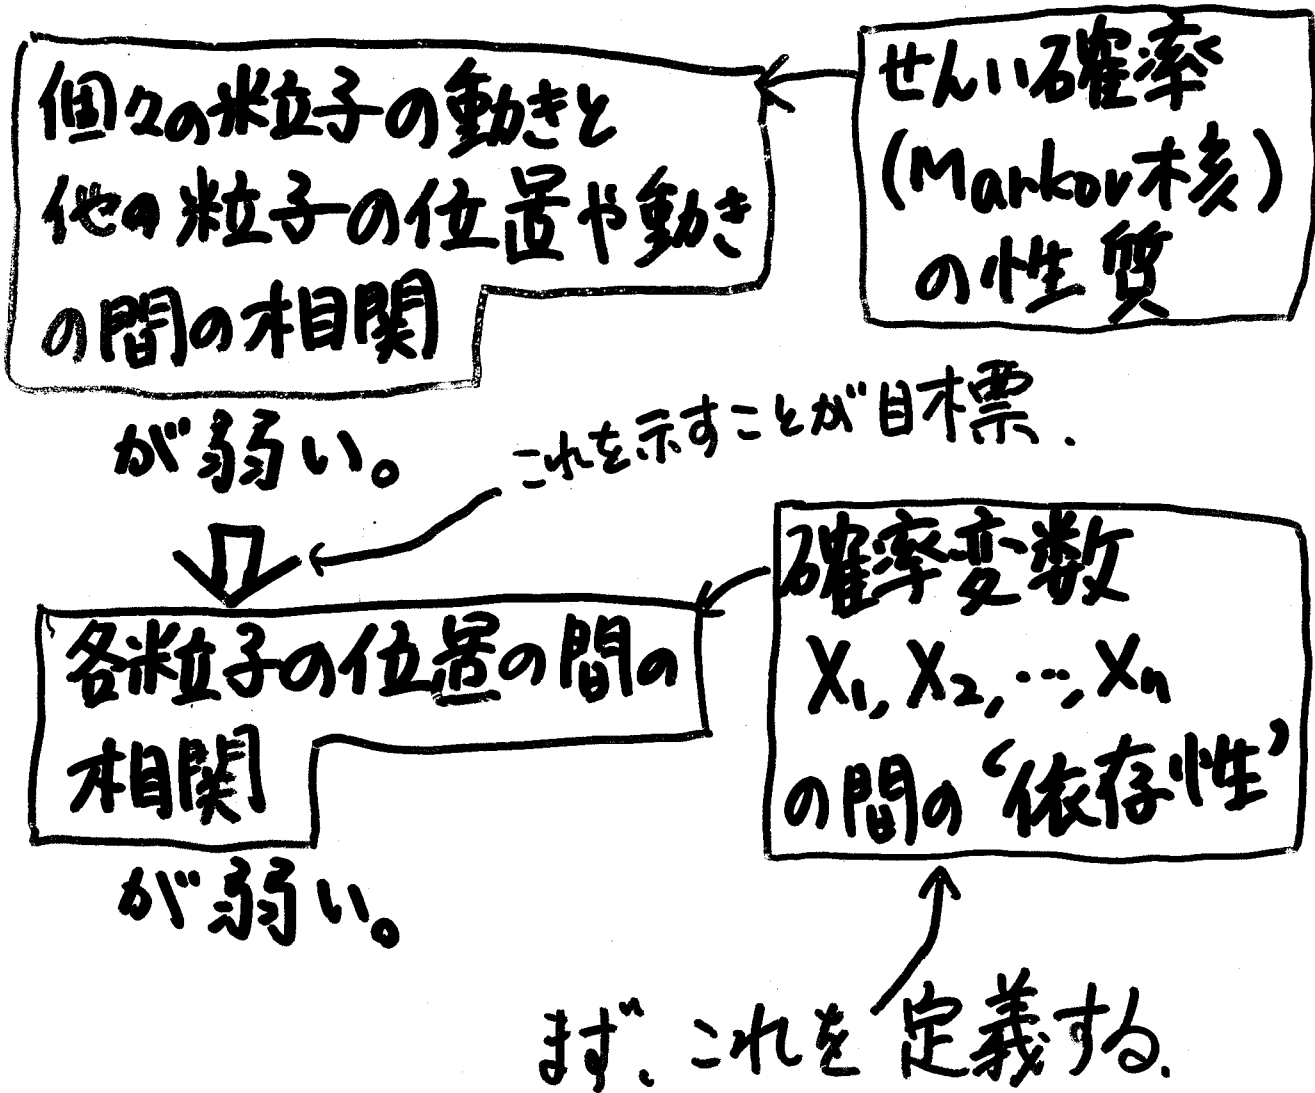 個々の粒子の動きと
他の粒子の位置や動き
の間の相関
が弱い。
せんい確率
(Markov核)
の性質
これを示すことが目標.
各粒子の位置の間の
相関
が弱い。
確率変数
X₁, X₂, …, Xₙ
の間の‘依存性’
まず、これを定義する.